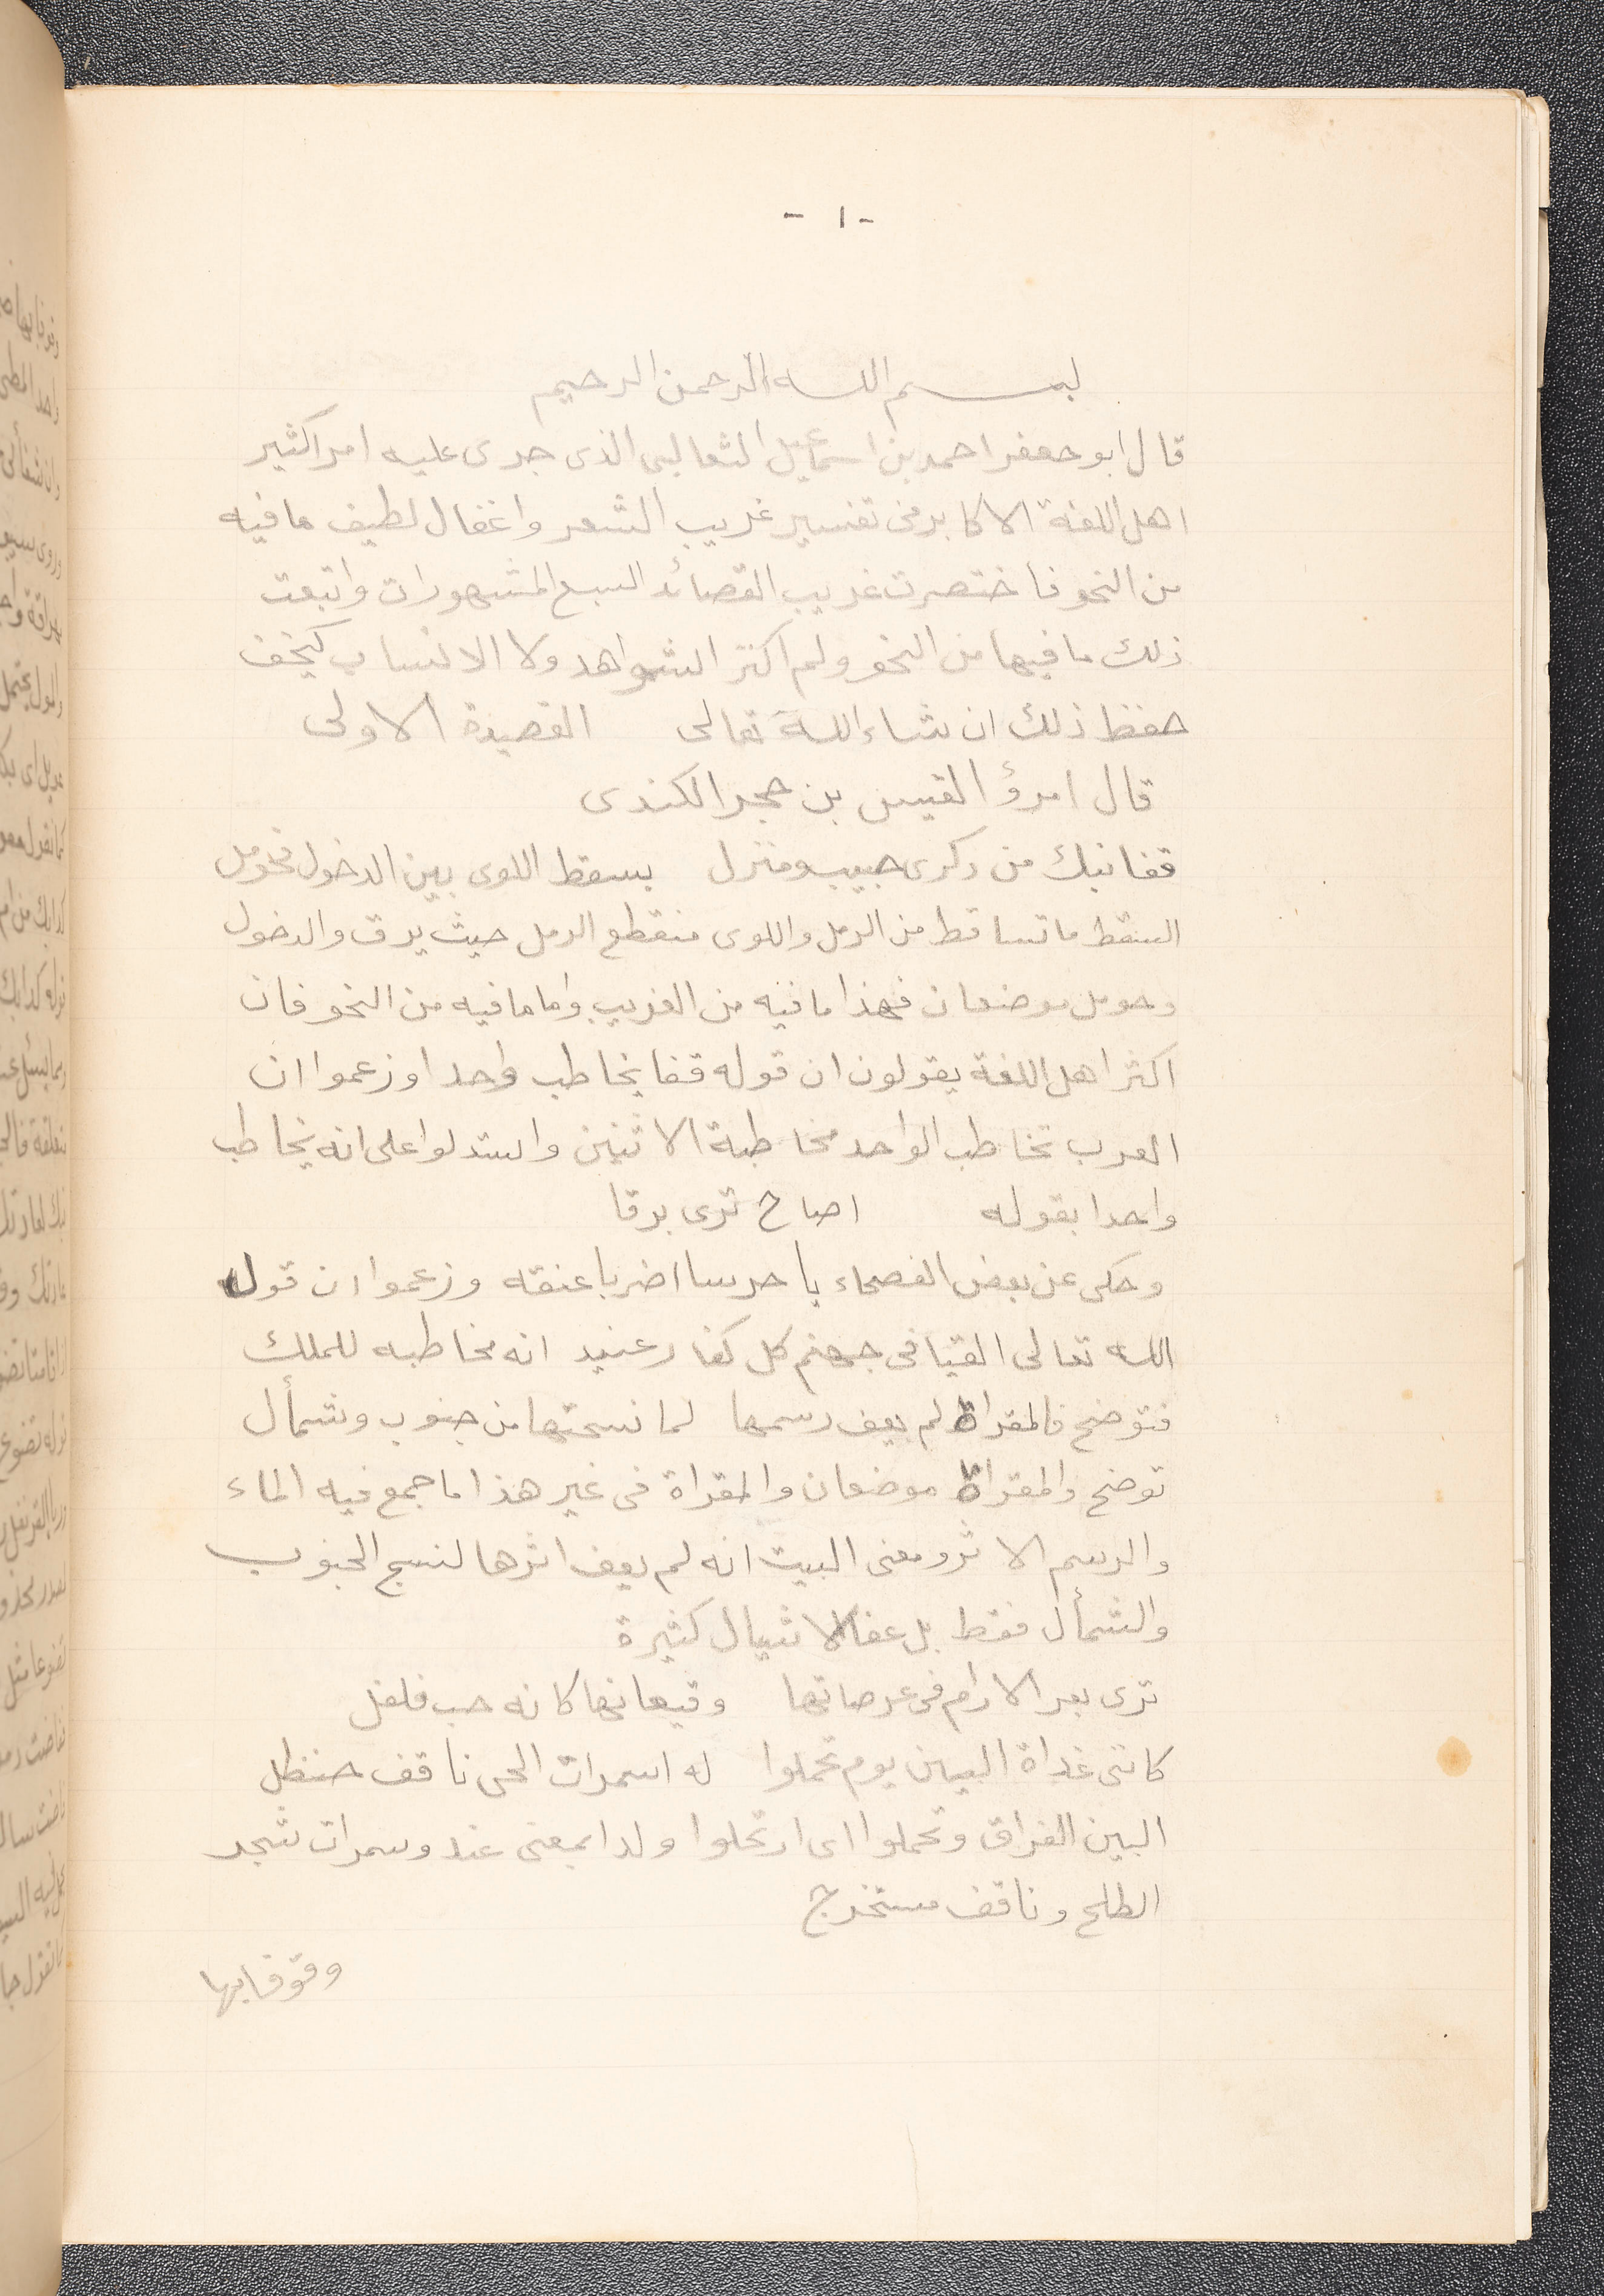 - ١ -
بسم الله الرحمن الرحيم
قال ابو جعفر احمد بن اسمعيل الثعالبى الذى جرى عليه امر اكثير
اهل اللغة الاكابر فى تفسير غريب الشعر واغفال لطيف ما فيه
من النحو فاختصرت غريب القصائد السبع المشهورات واتبعت
ذلك ما فيها من النحو ولم اكثر الشواهد ولا الانساب ليخف
حفظ ذلك ان شاء الله تعالى القصيدة الاولى
قال امرؤ القيس بن حجر الكندى
قفا نبك من ذكرى حبيب ومنزل بسقط اللوى بين الدخول فحومل
السقط ما تساقط من الرمل واللوى منقطع الرمل حيث يرق والدخول
وحومل موضعان فهذا ما فيه من الغريب واما ما فيه من النحو فان
اكثر اهل اللغة يقولون ان قوله قفا يخاطب واحدا وزعموا ان
العرب تخاطب الواحد مخاطبة الاثنين واستدلوا على انه يخاطب
واحدا بقوله اصاح ترى برقا
وحكى عن بعض الفصحاء يا حرسا اضربا عنقه وزعموا ان قول
الله تعالى القيا فى جهنم كل كفار عنيد انه مخاطبه للملك
فتوضح فالمقراة لم يعف رسمها لما نسجتها من جنوب وشمأل
توضح والمقراة موضعان والمقراة فى غير هذا ما جمع فيه الماء
والرسم الاثر ومعنى البيت انه لم يعف اثرها لنسج الجنوب
والشمأل فقط بل عفا لاشيال كثيرة
ترى بعر الارام فى عرصاتها وقيعانها كانه حب فلفل
كانى غداة البين يوم تحملوا لدا سمرات الحى ناقف حنظل
البين الفراق وتحملوا اى ارتحلوا ولدا بمعنى عند وسمرات شجر
الطلح وناقف مستخرج
وقوفا بها